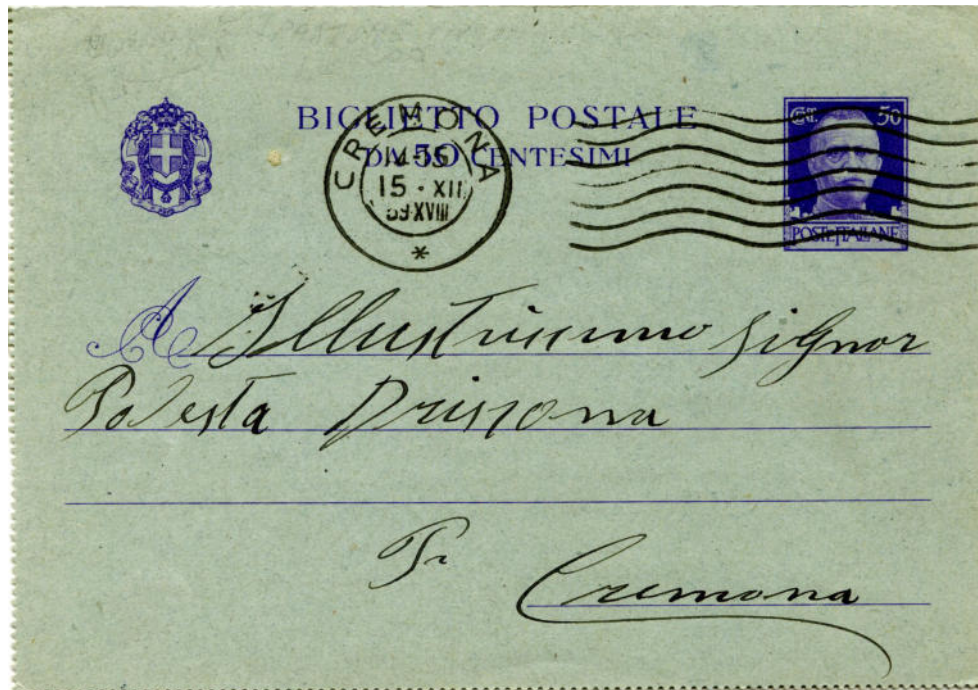 BIGLIETTO POSTALE
DA 50 CENTESIMI
CREMONA
15 · XII
39 XVIII
*
CT. 50
POSTE ITALIANE
A Illustrissimo Signor
Podesta Drizzona
Pr
Cremona